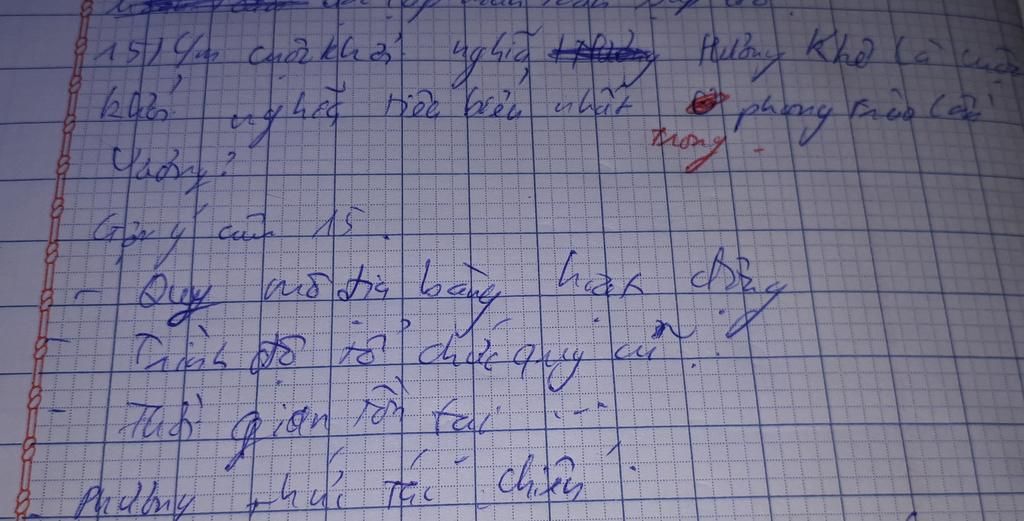 15) Vì sao cuộc khởi nghĩa Hương Khê là cuộc
khởi nghĩa tiêu biểu nhất trong phong trào Cần
Vương?
Gợi ý câu 15.
- Quy mô địa bàng hoạt động
- Trình độ tổ chức quy củ...
- Thời gian tồn tại ...
- Phương thức tác chiến.